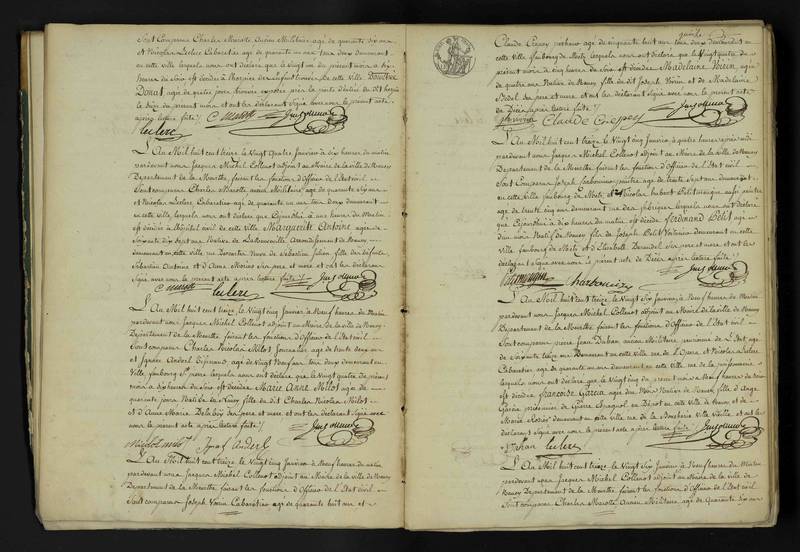 Sont Comparus Charles Marotte Ancien Militaire agé de quarante six ans
et Nicolas Leclerc Cabaretier agé de quarante un ans tous deux demeurant
en cette ville lesquels nous ont déclaré que le Vingt un du présent mois à dix
heures du soir est décédé à l'hospice des Enfants trouvés de cette ville
Donat agé de quatre jours
le dix du présent mois et ont les déclarant Signé avec nous le présent acte
après lecture faite
Leclerc C Marotte
L'An Mil huit cent treize le Vingt quatre Janvier à dix heures du matin
pardevant nous Jacques Michel Collenot adjoint au Maire de la ville de Nancy
Département de la Meurthe, faisant les fonctions d'Officier de l'Etat civil
Sont comparus Charles Marotte ancien Militaire agé de quarante Six ans
et Nicolas Leclerc Cabaretier agé de quarante un ans tous deux demeurant
en cette ville lesquels nous ont déclaré que Cejourd'hui à une heure du Matin
est décédée à l'hôpital civil de cette ville Marguerite Antoine agée de
Soixante dix sept ans Native de
demeurant en cette ville Veuve de Sébastien Julien fille des défunts
Sébastien Antoine et d'Anne Moriot Ses père et mère et ont les déclarant
Signé avec nous le présent acte après lecture faite
C Marotte Leclerc
L'An Mil huit cent treize, le Vingt cinq Janvier à Neuf heures du Matin
pardevant nous Jacques Michel Collenot adjoint au Maire de la ville de Nancy
Département de la Meurthe, faisant les fonctions d'Officier de l'Etat civil
Sont comparus Charles Nicolas Milot Journalier agé de trente deux ans
et Ignace Anderl agé de Vingt Neuf ans tous deux demeurant en cette
Ville, faubourg St pierre lesquels nous ont déclaré que le Vingt quatre du présent
mois à dix heures du Soir est décédée Marie Anne Milot agée de
quarante jours Native de Nancy fille du dit Charles Nicolas Milot
et d'Anne Marie Ses père et mère et ont les déclarant Signé avec
nous le présent acte après lecture faite
Ignac Anderl
L'An Mil huit cent treize le Vingt cinq Janvier à Neuf heures du matin
pardevant nous Jacques Michel Collenot adjoint au Maire de la ville de Nancy
Département de la Meurthe faisant les fonctions d'Officier de l'Etat Civil
Sont comparus Joseph Voirin Cabaretier agé de quarante huit ans et
quinze
Claude Crepey agé de cinquante huit ans tous deux demeurant en
cette ville faubourg de Metz lesquels nous ont déclaré que le Vingt quatre du
présent mois à cinq heures du Soir est décédée Madelaine Voirin, agée
de quatre ans Native de Nancy fille du dit Joseph Voirin et de Madelaine
Ses père et mère et ont les déclarant Signé avec nous le présent acte
de Décès après lecture faite
Claude Crepey
L'An Mil huit cent treize le Vingt cinq Janvier, à quatre heures après midi
pardevant nous Jacques Michel Collenot adjoint au Maire de la ville de Nancy
Département de la Meurthe, faisant les fonctions d'Officier de l'Etat Civil
Sont Comparus Joseph peintre agé de trente Sept ans demeurant
en cette ville faubourg de Metz et Nicolas hubert Petitmangin aussi peintre
agé de trente cinq ans demeurant rue des fabriques lesquels nous ont déclaré
que Cejourd'hui à dix heures du matin est décédé Ferdinand Petit agé
mois Natif de Nancy fils de Joseph Petit demeurant en cette
ville faubourg de Metz et d'Elisabeth Ses père et mère et ont les
déclarant Signé avec nous le présent acte de Décès après lecture faite
Petitmangin
L'An Mil huit cent treize le Vingt Six Janvier, à Neuf heures du Matin
pardevant nous Jacques Michel Collenot adjoint au Maire de la ville de Nancy
Département de la Meurthe, faisant les fonctions d'Officier de l'Etat civil
Sont comparus pierre Jean ancien Militaire pensionné de l'Etat agé
de Soixante treize ans Demeurant en cette Ville rue de l'Opera et Nicolas Leclerc
Cabaretier agé de quarante un ans demeurant en cette ville rue de la poissonnerie
lesquels nous ont déclaré que le Vingt cinq du présent mois à Neuf heures du soir
est décédée Francoise Garcia, agée Native de Nancy fille d'Ange
Garcia prisonnier de Guerre Espagnol en Dépot en cette ville de Nancy et de
Marie demeurant en cette ville rue de la Boucherie Ville Vieille et ont les
déclarant Signé avec nous le présent acte après lecture faite
Leclerc
L'An Mil huit cent treize, le Vingt Six Janvier à Neuf heures du Matin
pardevant nous Jacques Michel Collenot adjoint au Maire de la ville de
Nancy Département de la Meurthe, faisant les fonctions d'Officier de l'Etat civil
Sont comparus Charles Marotte Ancien Militaire agé de Quarante Six ans